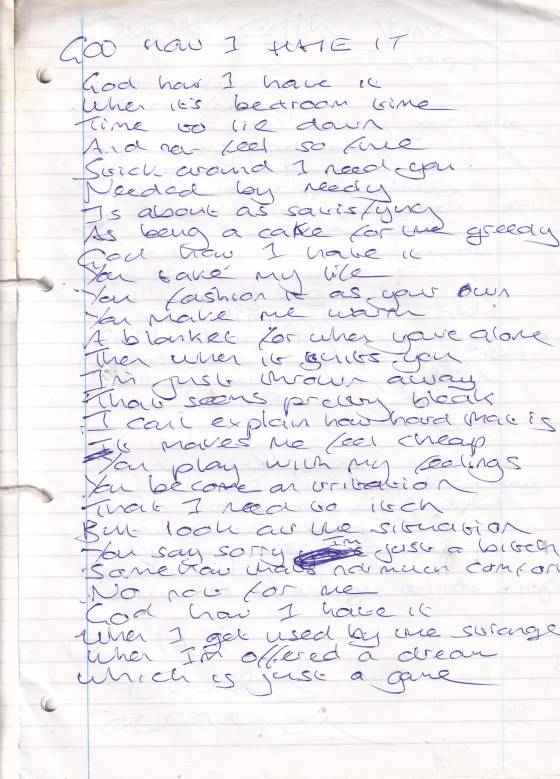 GOD HOW I HATE IT
God how I hate it
When it's bedroom time
Time to lie down
And not feel so fine
Stick around I need you.
Needed by needy
Is about as satisfying
As being a cake for the greedy
God how I hate it
You take my life
You fashion it as your own
You make me warm
A blanket for when your alone
Then when it suits you
I'm just thrown away
That seems pretty bleak
I can't explain how hard that is
It makes me feel cheap
You play with my feelings
You become an irritation
That I need to itch
But look at the situation
You say sorry I'm just a bitch
Somehow that's not much comfort
No not for me
God how I hate it
When I get used by the strange
When I'm offered a dream
Which is just a game